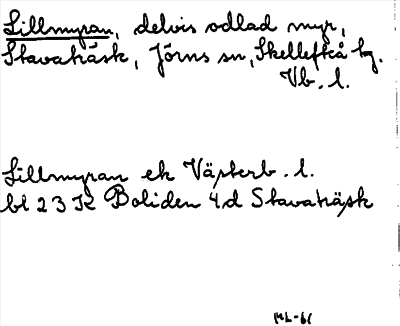 Lillmyran, delvis odlad myr,
Stavaträsk, Jörns sn, Skellefteå kg.
Vb. l.
Lillmyran ek Västerb. l.
bl 23 K Boliden 4d Stavaträsk
ML-61